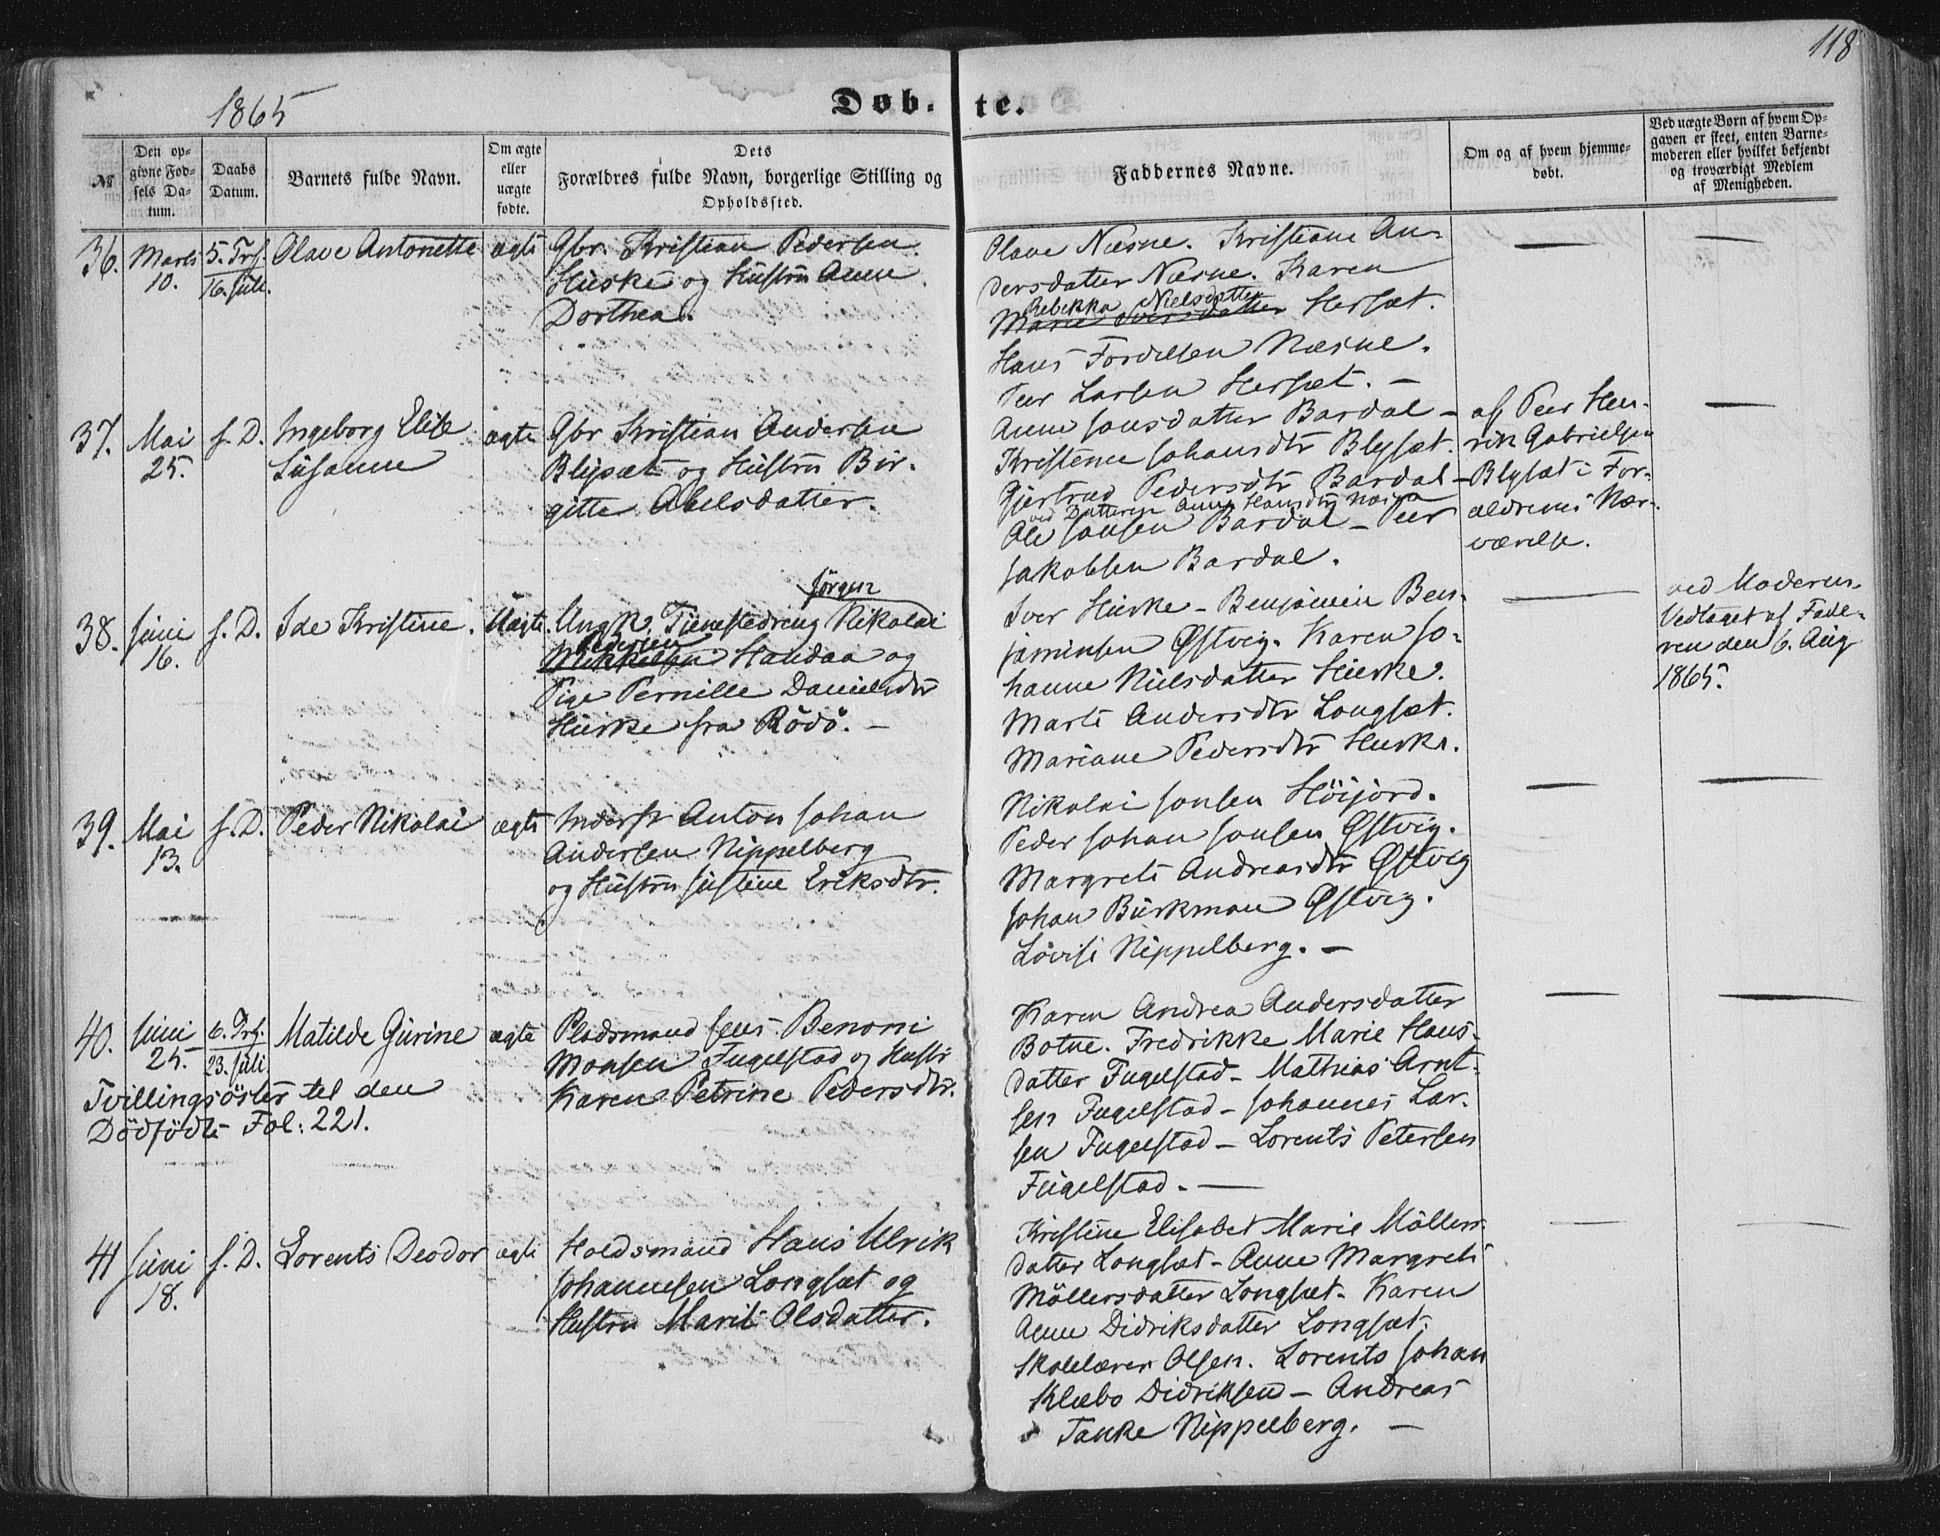 118
1865
Døb- te.
№
Den op-
givne Fød-
sels Da-
tum.
Daabs
Datum.
Barnets fulde Navn.
Om ægte
eller
uægte
fødte.
Dets
Forældres fulde Navn, borgerlige Stilling og
Opholdssted.
Faddernes Navne.
Om og af hvem hjemme-
døbt.
Ved uægte Børn af hvem Op-
gaven er skeet, enten Barne-
moderen eller hvilket bekjendt
og troværdigt Medlem
af Menigheden.
36. Marts
10.
5. Trf.
16. Juli.
Olave Antonette
ægte
Gbr. Kristian Pedersen
Huske og Hustru Anne
Dorthea.
Olave Næsne. Kristiane An-
dersdatter Næsne. Karen
Rebekka Nielsdatter
Marie Iversdatter Hersæt.
Hans Fordelsen Næsne.
Peer Larsen Hersæt. —
37. Mai
25.
f. D.
Ingeborg Elise
Susanne
ægte
Gbr Kristian Andersen
Blysæt og Hustru Bir-
gitte Abelsdatter.
Anne Jonsdatter Bardal —
Kristense Johansdtr Blysæt.
Gjertrud Pedersdtr Bardal —
ved Datteren Anne Hansdtr
Ole Jonsen Bardal — Peer
Jakobsen Bardal.
af Peer Hen-
rik Gabrielsen
Blysæt i For-
ældrenes Nær-
værelse.
38. Juni
16.
f. D.
Ide Kristine.
Uægte.
Jørgen
Ungk. Tjenestedreng Nikolai
Pedersen
Mikkelsen Handaa og
Pige Pernille Danielsdtr
Huske fra Rödö. —
Iver Huske — Benjamin Ben-
jaminsen Østvig. Karen Jo-
hanne Nielsdatter Huske.
Marte Andersdtr Longsæt.
Mariane Pedersdtr Huske.
ved Moderen.
Vedtaget af Fade-
ren den 6. Aug
1865.
39. Mai
13.
f. D.
Peder Nikolai
ægte
Inderst Anton Johan
Andersen Nippelberg
og Hustru Justine Eriksdtr.
Nikolai Jonsen Höijord.
Peder Johan Jonsen Østvig.
Margrete Andreasdtr Østvig
Johan Burkman Østvig.
Lovise Nippelberg. —
40. Juni
25.
6. Trf.
23. Juli
Matilde Gurine
ægte
Pladsmand Jens Benoni
Monsen Fugelstad og Hustr
Karen Petrine Pedersdtr.
Tvillingsöster til den
Dödfödte Fol: 221.
Karen Andrea Andersdatter
Botne. Fredrikke Marie Hans-
datter Fugelstad — Mathias Arnt-
sen Fugelstad — Johannes Lar-
sen Fugelstad — Lorents Petersen
Fugelstad. —
41 Juni
18.
f. D.
Lorents Deodor
ægte
Holdsmand Hans Ulrik
Johannesen Longsæt og
Hustru Marit Olsdatter.
Kristine Elisabet Marie Möllers-
datter Longsæt — Anne Margrete
Möllersdatter Longsæt — Karen
Anne Didriksdatter Longsæt.
Skolelærer Olsen. Lorents Johan
Klæbo Didriksen — Andreas
Tanke Nippelberg. —